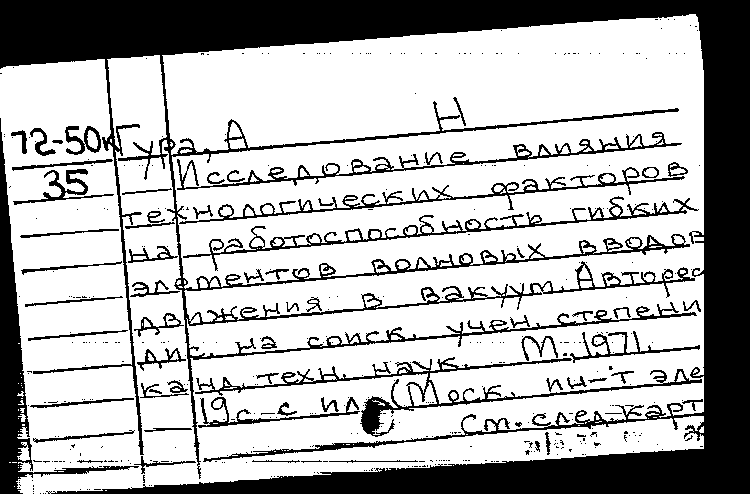 72-50к Гура, А Н
35 Исследование влияния
технологических факторов
на работоспособность гибких
элементов волновых вводов
движения в вакуум. Автореф
дис. на соиск. учен. степени
канд. техн. наук. М., 1971.
19с. с ил. (Моск. ин-т эле
См. след. карт